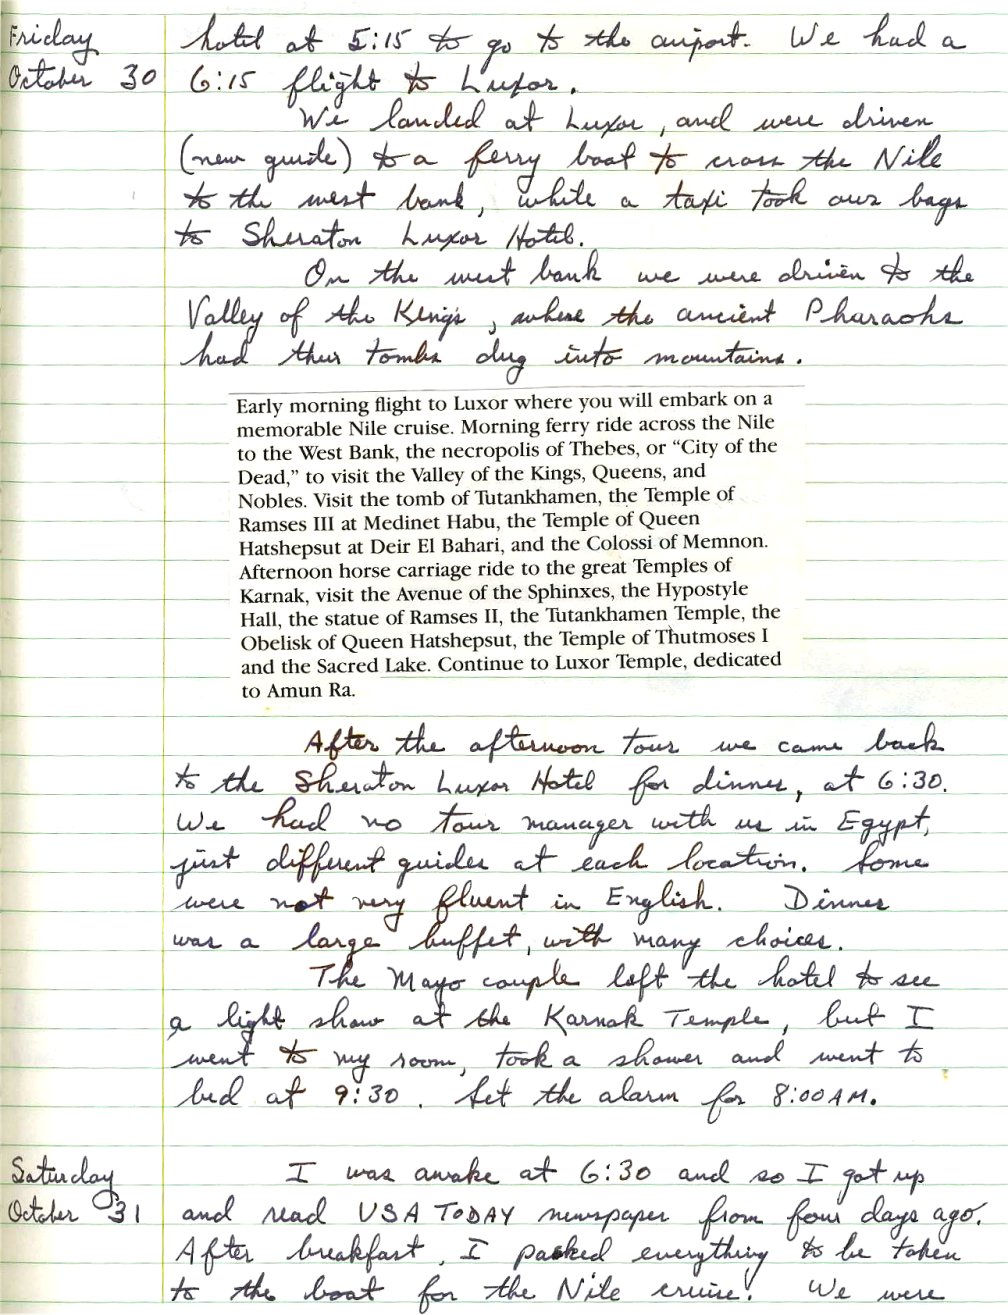 Friday
October 30
hotel at 5:15 to go to the airport. We had a
6:15 flight to Luxor.
We landed at Luxor, and were driven
(new guide) to a ferry boat to cross the Nile
to the west bank, while a taxi took our bags
to Sheraton Luxor Hotel.
On the west bank we were driven to the
Valley of the Kings, where the ancient Pharaohs
had their tombs dug into mountains.
Early morning flight to Luxor where you will embark on a
memorable Nile cruise. Morning ferry ride across the Nile
to the West Bank, the necropolis of Thebes, or “City of the
Dead,” to visit the Valley of the Kings, Queens, and
Nobles. Visit the tomb of Tutankhamen, the Temple of
Ramses III at Medinet Habu, the Temple of Queen
Hatshepsut at Deir El Bahari, and the Colossi of Memnon.
Afternoon horse carriage ride to the great Temples of
Karnak, visit the Avenue of the Sphinxes, the Hypostyle
Hall, the statue of Ramses II, the Tutankhamen Temple, the
Obelisk of Queen Hatshepsut, the Temple of Thutmoses I
and the Sacred Lake. Continue to Luxor Temple, dedicated
to Amun Ra.
After the afternoon tour we came back
to the Sheraton Luxor Hotel for dinner, at 6:30.
We had no tour manager with us in Egypt,
just different guides at each location. Some
were not very fluent in English. Dinner
was a large buffet, with many choices.
The Mayo couple left the hotel to see
a light show at the Karnak Temple, but I
went to my room, took a shower and went to
bed at 9:30. Set the alarm for 8:00 AM.
Saturday
October 31
I was awake at 6:30 and so I got up
and read USA TODAY newspaper from four days ago.
After breakfast, I packed everything to be taken
to the boat for the Nile cruise. We were